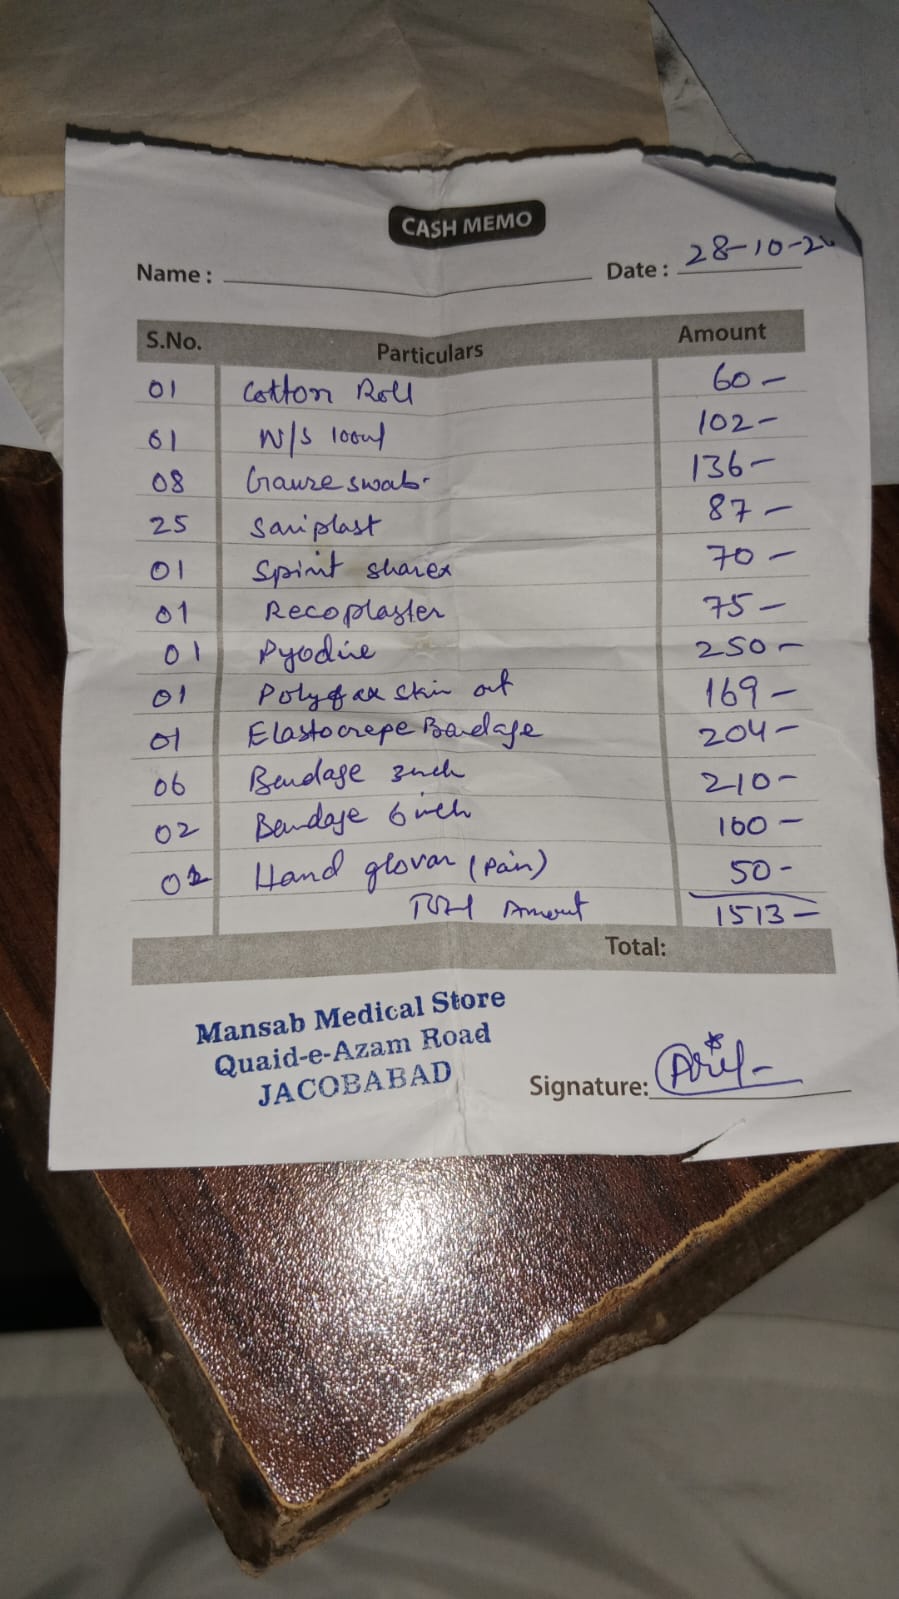 CASH MEMO
Name : Date : 28-10-2
S.No. Particulars Amount
01 Cotton Roll 60-
01 N/S 100ml 102-
08 Gauze swab. 136-
25 Saniplast 87-
01 Spirit 70-
01 Recoplaster 75-
01 Pyodine 250-
01 Polyfax Skin 169-
01 Elastocrepe Bandage 204-
06 Bandage 3inch 210-
02 Bandage 6 inch 100-
Hand (Pair) 50-
Total Amount 1513-
Total:
Mansab Medical Store
Quaid-e-Azam Road
JACOBABAD
Signature: